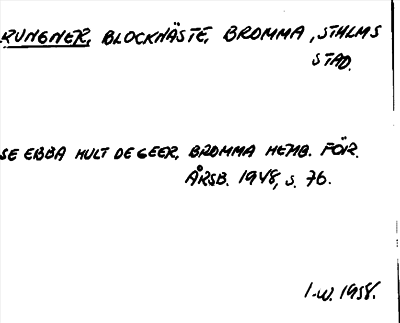 RUNGNER, BLOCKNÄSTE, BROMMA, STHLMS
STAD.
SE EBBA HULT DE GEER, BROMMA HEMB. FÖR.
ÅRSB. 1948, S. 76.
I.W. 1958.